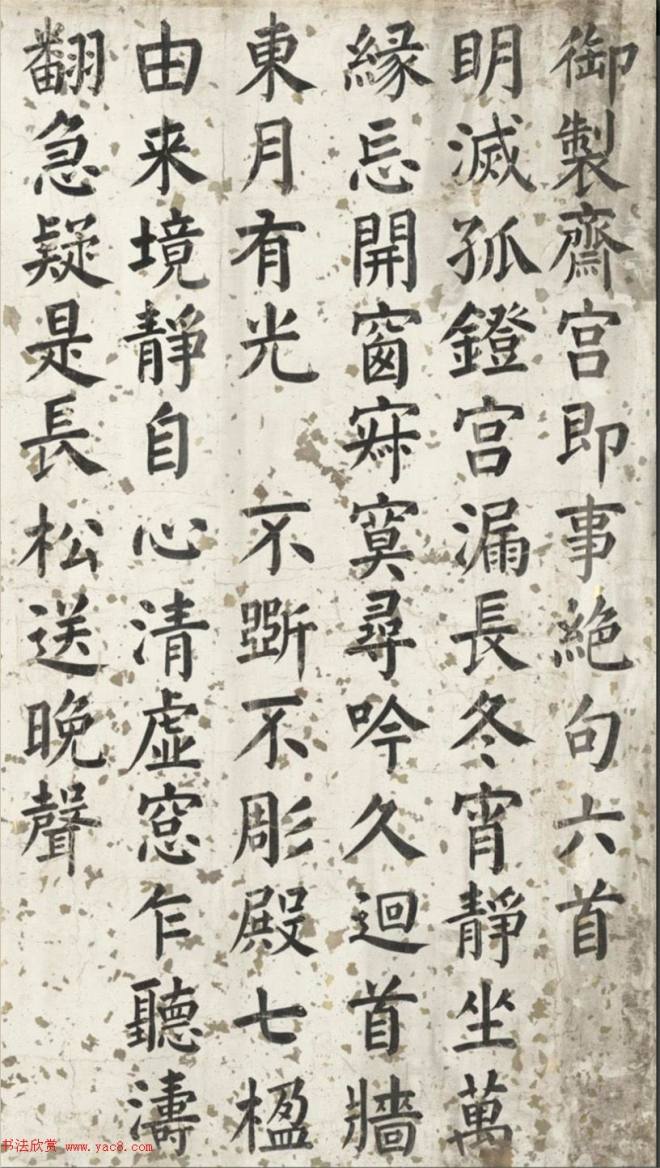 御製齋宮即事絶句六首
明滅孤鐙宮漏長冬宵靜坐萬
緣忘開窗寂寞尋吟久迴首牆
東月有光 不斲不彫殿七楹
由来境靜自心清虛窓乍聽濤
翻急疑是長松送晚聲
书法欣赏 www.yac8.com